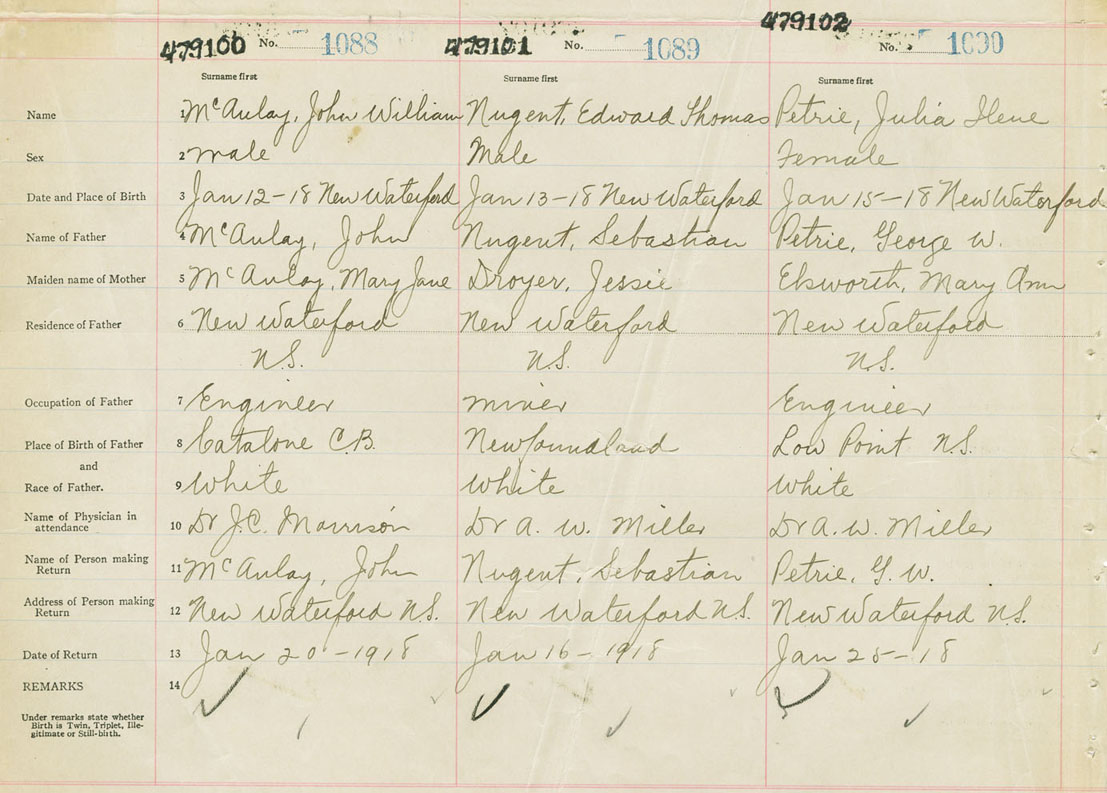 479100 No. 1088 479101 No. 1089 479102 No. 1090
Surname first Surname first Surname first
Name 1 McAulay, John William Nugent, Edward Thomas Petrie, Julia Ilene
Sex 2 Male Male Female
Date and Place of Birth 3 Jan 12-18 New Waterford Jan 13-18 New Waterford Jan 15-18 New Waterford
Name of Father 4 McAulay, John Nugent, Sebastian Petrie, George W.
Maiden name of Mother 5 McAulay, Mary Jane Droyer, Jessie Elsworth, Mary Ann
Residence of Father 6 New Waterford New Waterford New Waterford
N.S. N.S. N.S.
Occupation of Father 7 Engineer Miner Engineer
Place of Birth of Father 8 Catalone C.B. Newfoundland Low Point N.S.
and
Race of Father. 9 White White White
Name of Physician in
attendance 10 Dr J.C. Morrison Dr A. W. Miller Dr A. W. Miller
Name of Person making
Return 11 McAulay, John Nugent, Sebastian Petrie, G. W.
Address of Person making
Return 12 New Waterford N.S. New Waterford N.S. New Waterford N.S.
Date of Return 13 Jan 20-1918 Jan 16-1918 Jan 25-18
REMARKS 14
Under remarks state whether
Birth is Twin, Triplet, Ille-
gitimate or Still-birth.